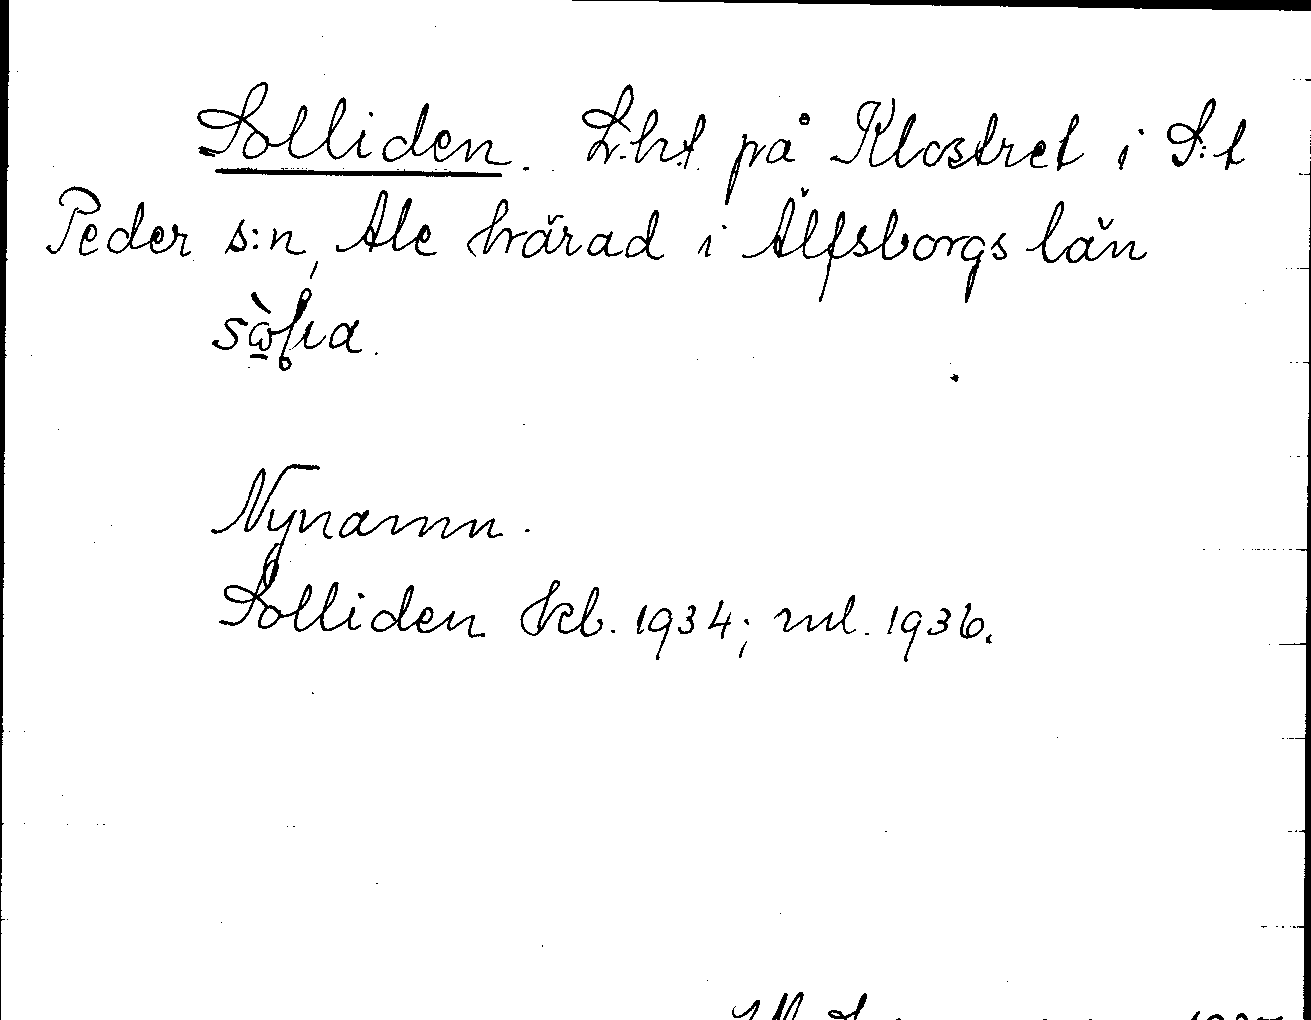 Solliden. L:ht på Klostret i S:t
Peder s:n, Ale härad i Älfsborgs län
Nynamn.
Solliden kb. 1934; ml. 1936.